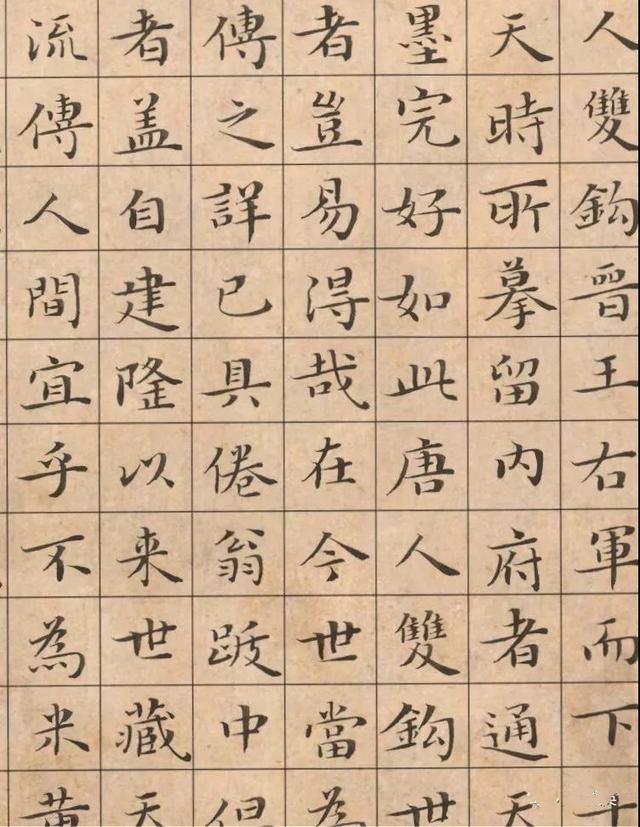 人雙鈎晉王右軍而下十
天時所摹留内府者通天
墨完好如此唐人雙鈎世
者豈易得哉在今世當為
傳之詳已具倦翁跋中但
者盖自建隆以来世藏天
流傳人間宜乎不為米黄